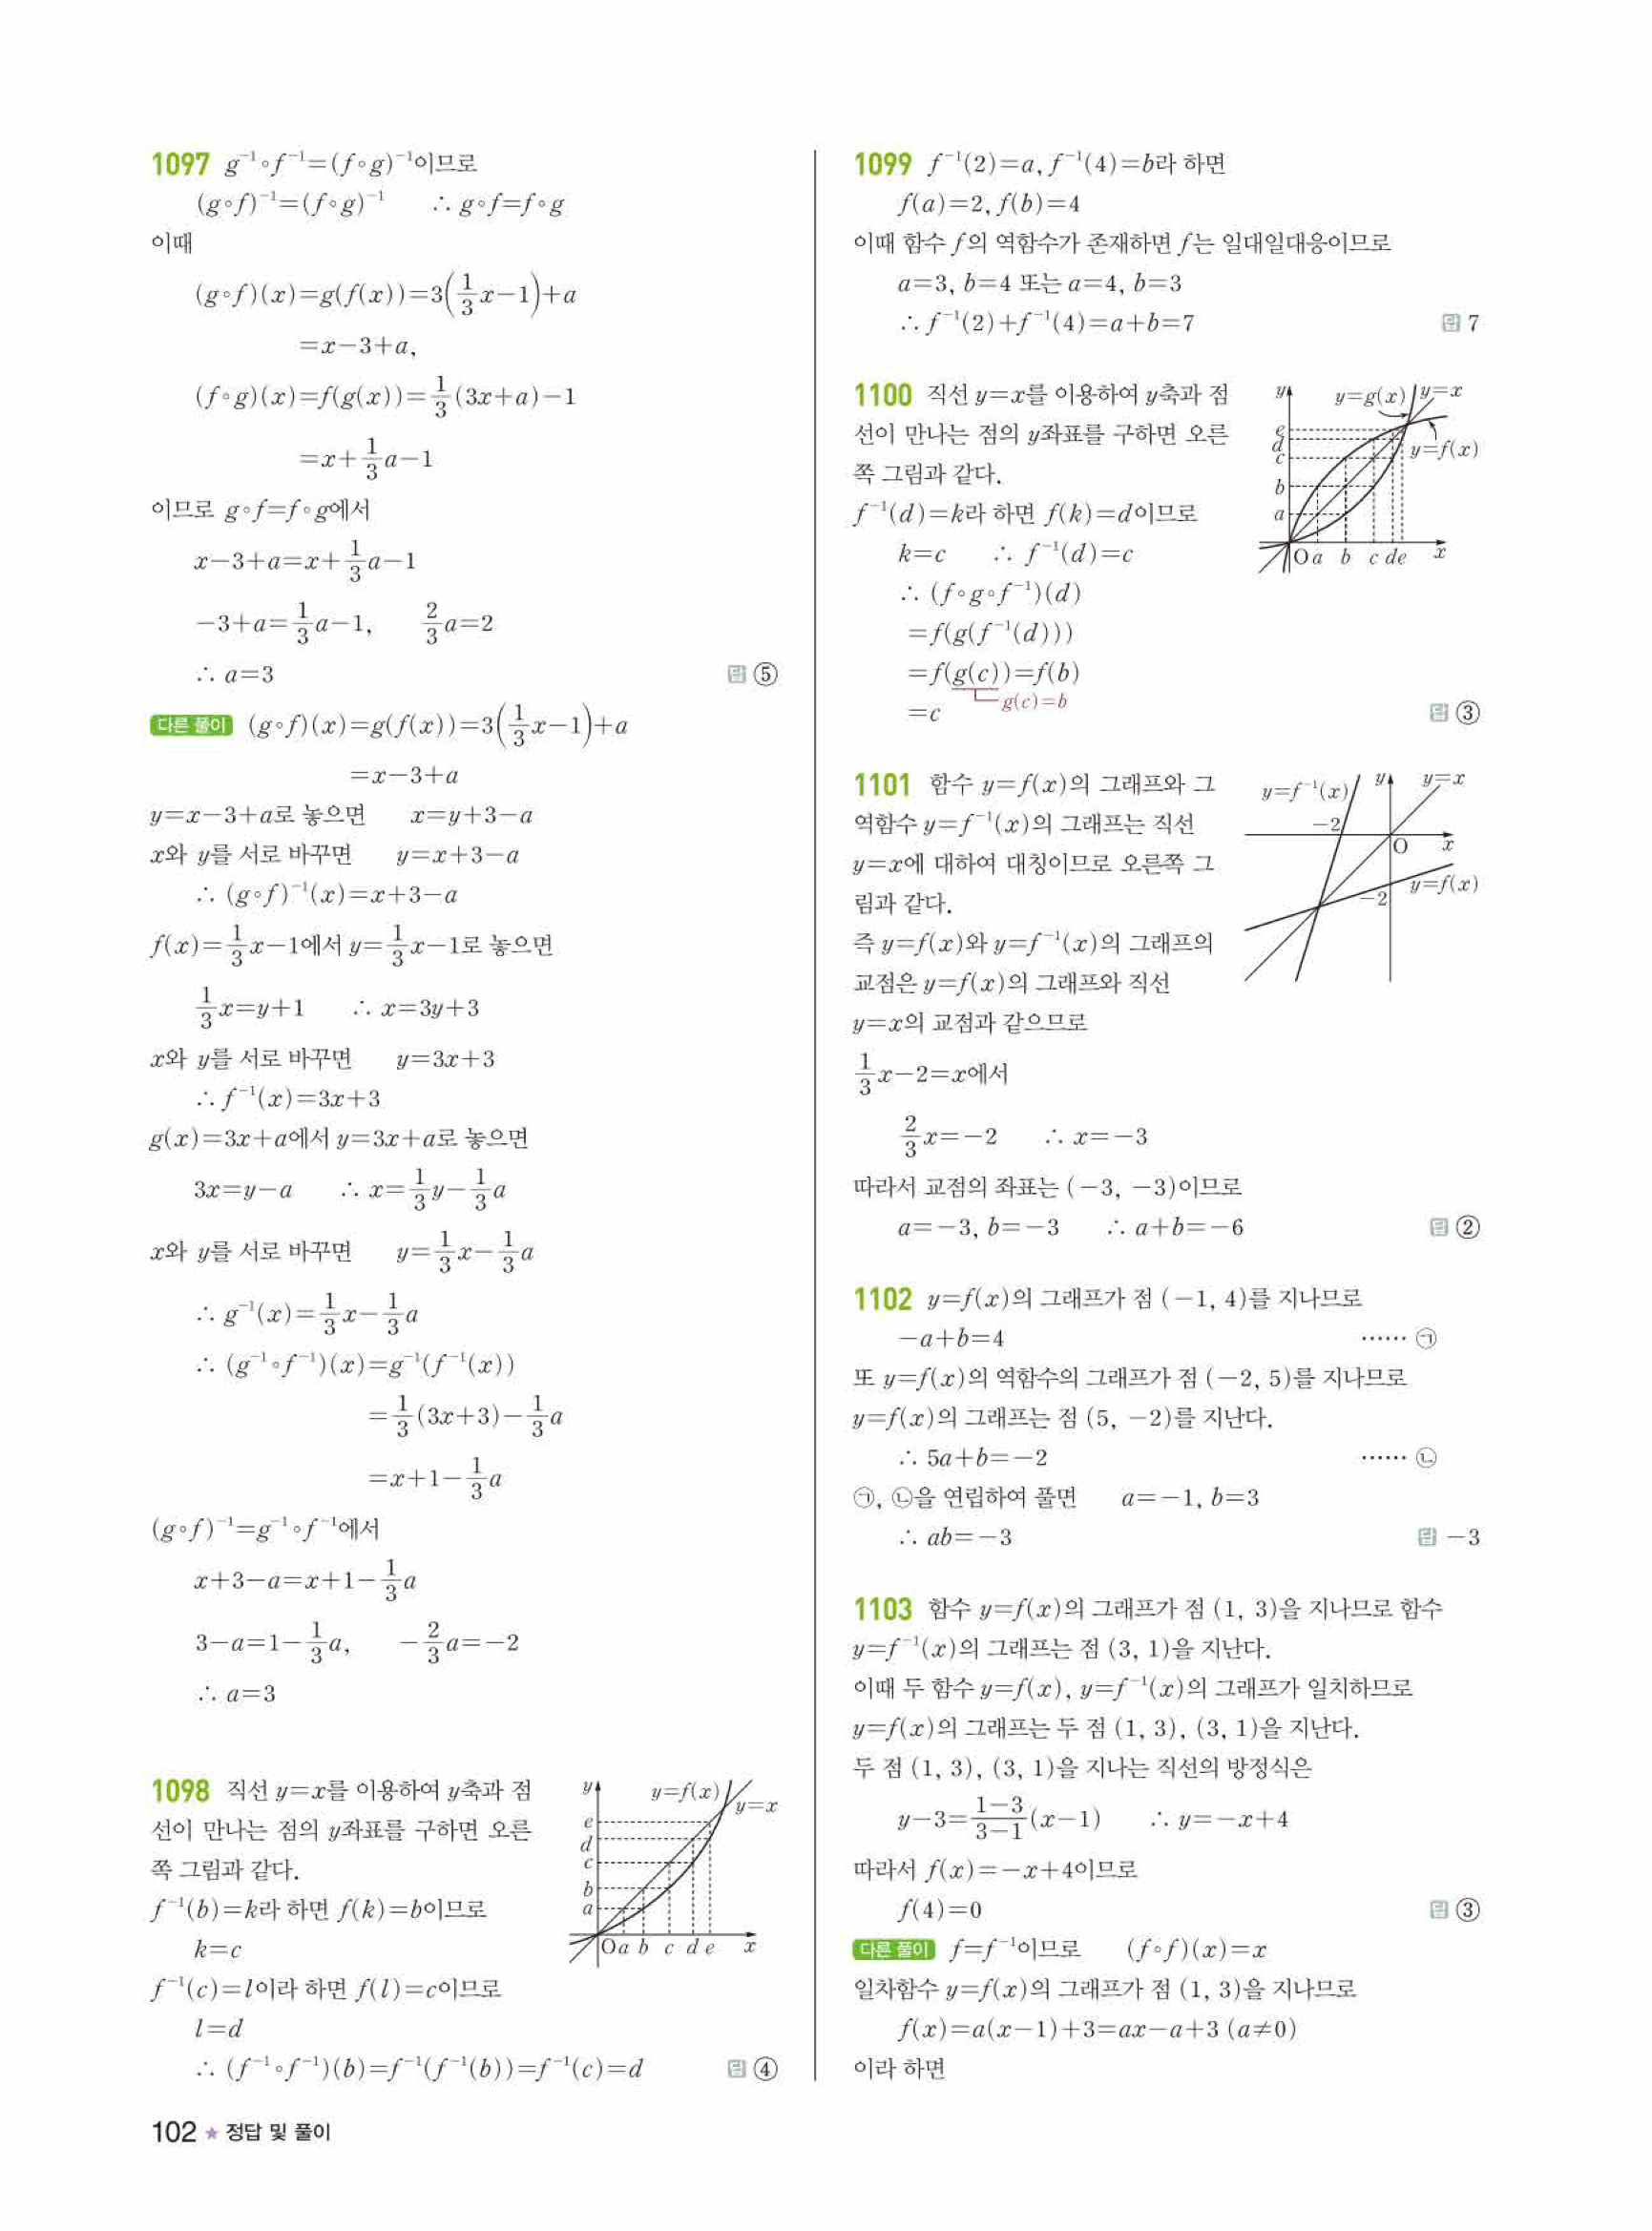 1097 g⁻¹∘f⁻¹=(f∘g)⁻¹이므로
(g∘f)⁻¹=(f∘g)⁻¹ ∴ g∘f=f∘g
이때
(g∘f)(x)=g(f(x))=3(1/3 x-1)+a
=x-3+a,
(f∘g)(x)=f(g(x))=1/3(3x+a)-1
=x+1/3 a-1
이므로 g∘f=f∘g에서
x-3+a=x+1/3 a-1
-3+a=1/3 a-1, 2/3 a=2
∴ a=3 답 ⑤
다른 풀이 (g∘f)(x)=g(f(x))=3(1/3 x-1)+a
=x-3+a
y=x-3+a로 놓으면 x=y+3-a
x와 y를 서로 바꾸면 y=x+3-a
∴ (g∘f)⁻¹(x)=x+3-a
f(x)=1/3 x-1에서 y=1/3 x-1로 놓으면
1/3 x=y+1 ∴ x=3y+3
x와 y를 서로 바꾸면 y=3x+3
∴ f⁻¹(x)=3x+3
g(x)=3x+a에서 y=3x+a로 놓으면
3x=y-a ∴ x=1/3 y-1/3 a
x와 y를 서로 바꾸면 y=1/3 x-1/3 a
∴ g⁻¹(x)=1/3 x-1/3 a
∴ (g⁻¹∘f⁻¹)(x)=g⁻¹(f⁻¹(x))
=1/3(3x+3)-1/3 a
=x+1-1/3 a
(g∘f)⁻¹=g⁻¹∘f⁻¹에서
x+3-a=x+1-1/3 a
3-a=1-1/3 a, -2/3 a=-2
∴ a=3
1098 직선 y=x를 이용하여 y축과 점
선이 만나는 점의 y좌표를 구하면 오른
쪽 그림과 같다.
f⁻¹(b)=k라 하면 f(k)=b이므로
k=c
f⁻¹(c)=l이라 하면 f(l)=c이므로
l=d
∴ (f⁻¹∘f⁻¹)(b)=f⁻¹(f⁻¹(b))=f⁻¹(c)=d 답 ④
y
y=f(x)
y=x
e
d
c
b
a
O a b c d e x
102 ★ 정답 및 풀이
1099 f⁻¹(2)=a, f⁻¹(4)=b라 하면
f(a)=2, f(b)=4
이때 함수 f의 역함수가 존재하면 f는 일대일대응이므로
a=3, b=4 또는 a=4, b=3
∴ f⁻¹(2)+f⁻¹(4)=a+b=7 답 7
1100 직선 y=x를 이용하여 y축과 점
선이 만나는 점의 y좌표를 구하면 오른
쪽 그림과 같다.
f⁻¹(d)=k라 하면 f(k)=d이므로
k=c ∴ f⁻¹(d)=c
∴ (f∘g∘f⁻¹)(d)
=f(g(f⁻¹(d)))
=f(g(c))=f(b)
g(c)=b
=c 답 ③
y
y=g(x)
y=x
y=f(x)
e
d
c
b
a
O a b c d e x
1101 함수 y=f(x)의 그래프와 그
역함수 y=f⁻¹(x)의 그래프는 직선
y=x에 대하여 대칭이므로 오른쪽 그
림과 같다.
즉 y=f(x)와 y=f⁻¹(x)의 그래프의
교점은 y=f(x)의 그래프와 직선
y=x의 교점과 같으므로
1/3 x-2=x에서
2/3 x=-2 ∴ x=-3
따라서 교점의 좌표는 (-3, -3)이므로
a=-3, b=-3 ∴ a+b=-6 답 ②
y=f⁻¹(x)
y
y=x
-2
O
x
y=f(x)
-2
1102 y=f(x)의 그래프가 점 (-1, 4)를 지나므로
-a+b=4 …… ㉠
또 y=f(x)의 역함수의 그래프가 점 (-2, 5)를 지나므로
y=f(x)의 그래프는 점 (5, -2)를 지난다.
∴ 5a+b=-2 …… ㉡
㉠, ㉡을 연립하여 풀면 a=-1, b=3
∴ ab=-3 답 -3
1103 함수 y=f(x)의 그래프가 점 (1, 3)을 지나므로 함수
y=f⁻¹(x)의 그래프는 점 (3, 1)을 지난다.
이때 두 함수 y=f(x), y=f⁻¹(x)의 그래프가 일치하므로
y=f(x)의 그래프는 두 점 (1, 3), (3, 1)을 지난다.
두 점 (1, 3), (3, 1)을 지나는 직선의 방정식은
y-3=(1-3)/(3-1)(x-1) ∴ y=-x+4
따라서 f(x)=-x+4이므로
f(4)=0 답 ③
다른 풀이 f=f⁻¹이므로 (f∘f)(x)=x
일차함수 y=f(x)의 그래프가 점 (1, 3)을 지나므로
f(x)=a(x-1)+3=ax-a+3 (a≠0)
이라 하면